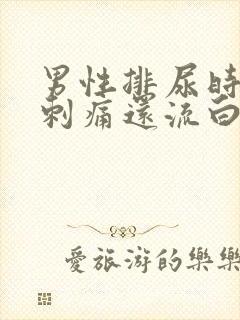 男性排尿時
刺痛還流白
愛旅游的樂樂